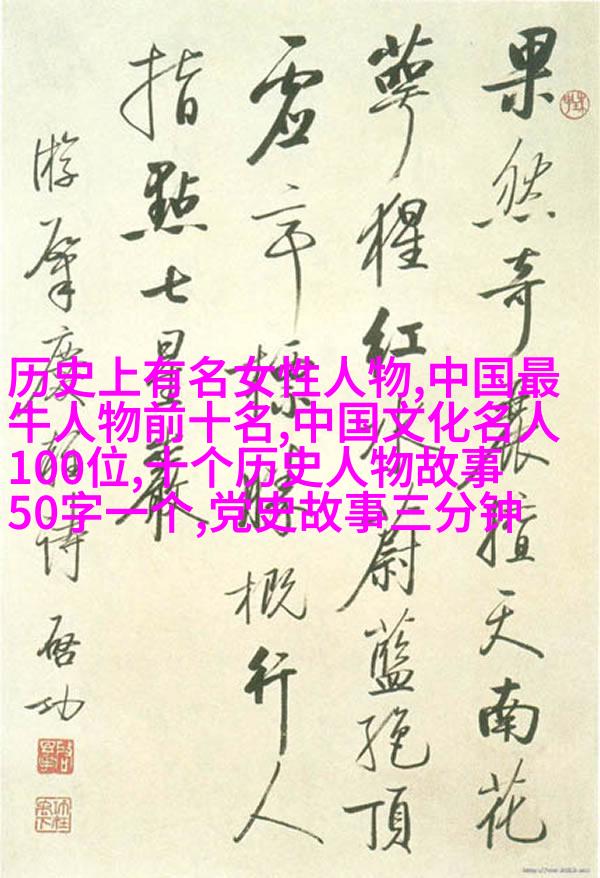 果然奇麗擅天南花
萼猩紅水蔚藍絕頂
虛亭標勝概行人
指點七星巖
游肇慶詩 啟功
历史上有名女性人物,中国最
牛人物前十名,中国文化名人
100位,十个历史人物故事
50字一个,党史故事三分钟